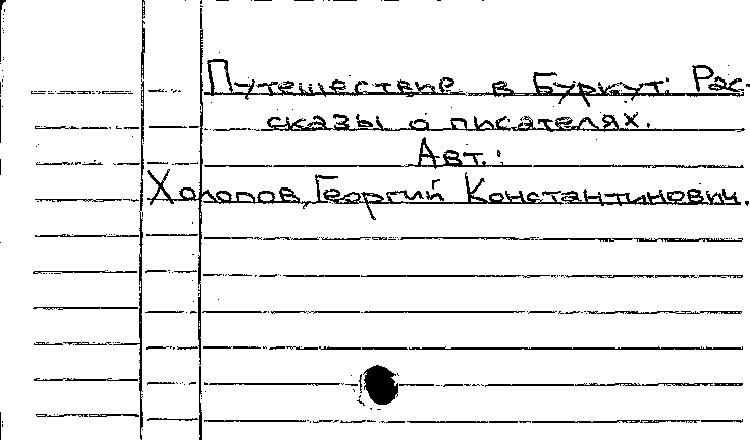 Путешествие в Буркут: Рас-
сказы о писателях.
Авт.:
Холопов, Георгий Константинович.